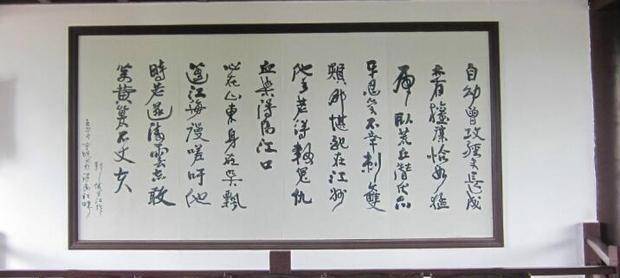 自幼曾攻經史長成
亦有權謀恰如猛
虎臥荒丘潛伏爪
牙忍受不幸刺雙
頰那堪配在江州
他年若得報冤仇
血染潯陽江口
心在山東身在吳飄
蓬江海謾嗟吁他
時若遂凌雲志敢
笑黄巢不丈夫